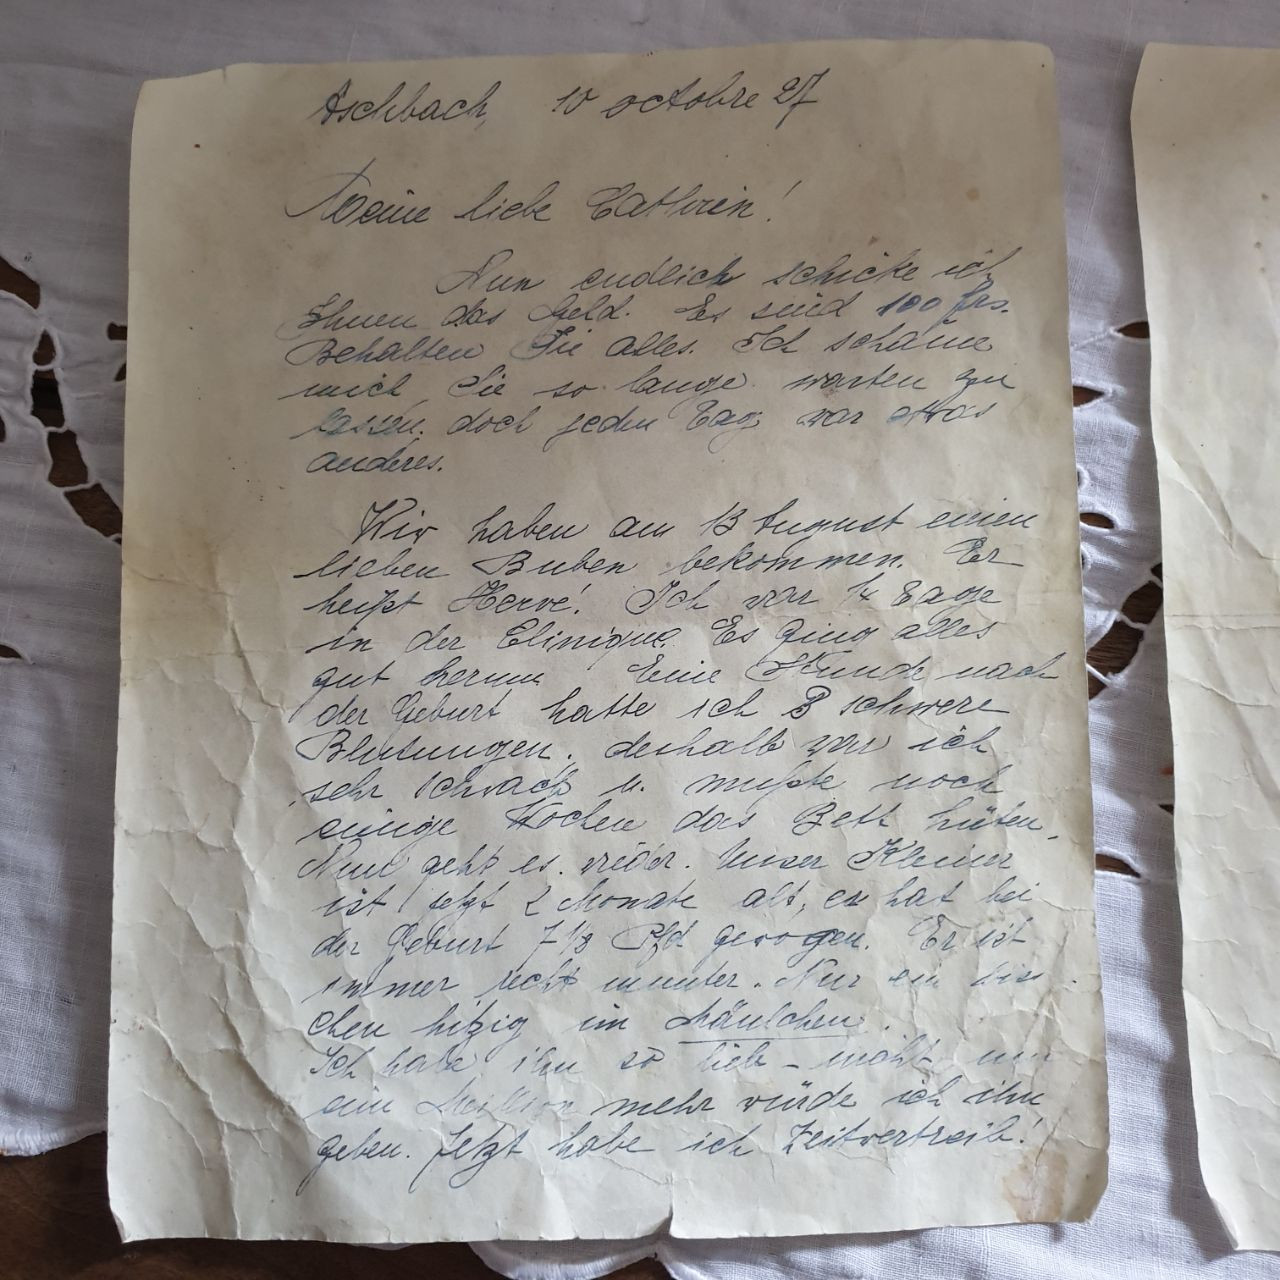 Aschbach, 10 octobre 27
Meine liebe Cathrin!
Nun endlich schicke ich
Ihnen das Geld. Es sind 100 frs.
Behalten Sie alles. Ich schäme
mich Sie so lange warten zu
lassen. doch jeden Tag war etwas
anderes.
Wir haben am 13 August einen
lieben Buben bekommen. Er
heißt Hervé! Ich war 14 Tage
in der Clinique. Es ging alles
gut herum. Eine Stunde nach
der Geburt hatte ich 3 schwere
Blutungen, deshalb war ich
sehr schwach u. mußte noch
einige Wochen das Bett hüten.
Nun geht es wieder. Unser Kleiner
ist jetzt 2 Monate alt, er hat bei
der Geburt 7 1/2 Pfd gewogen. Er ist
immer recht munter. Nur ein bis
chen hitzig im Mäulchen.
Ich habe ihn so lieb - nicht um
ein Million mehr würde ich ihn
geben. Jetzt habe ich Zeitvertreib!